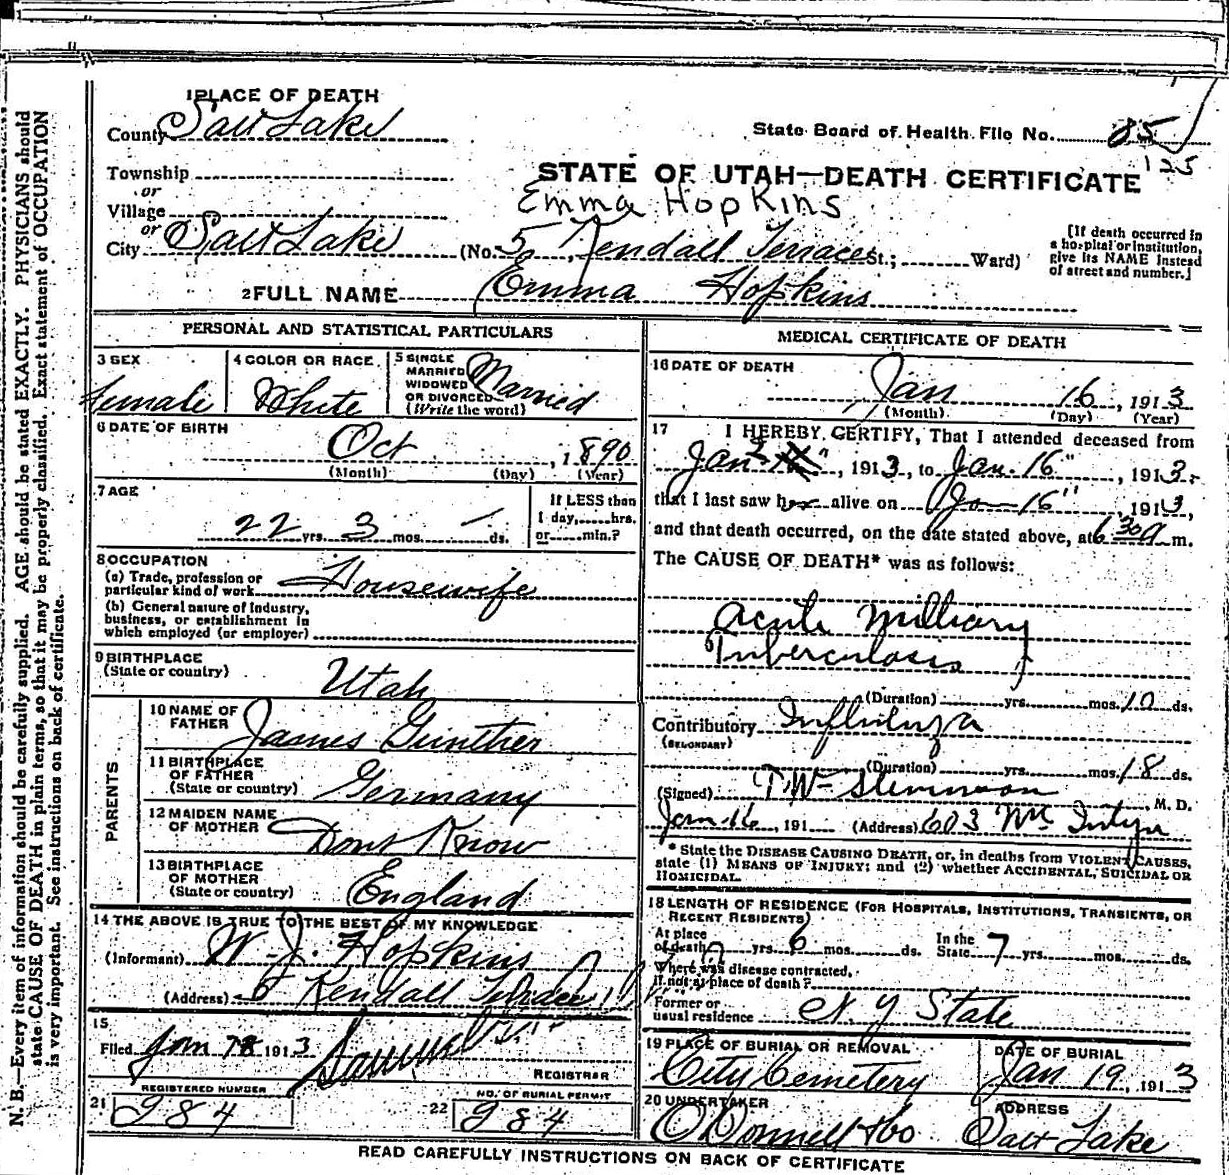 1 PLACE OF DEATH
County Salt Lake
State Board of Health File No. 85
125
Township
or
Village
or
City Salt Lake
STATE OF UTAH—DEATH CERTIFICATE
Emma Hopkins
(No. 5, Kendall Terrace St.; Ward)
[If death occurred in
a hospital or institution,
give its NAME instead
of street and number.]
2 FULL NAME Emma Hopkins
PERSONAL AND STATISTICAL PARTICULARS
3 SEX
female
4 COLOR OR RACE
White
5 SINGLE
MARRIED
WIDOWED
OR DIVORCED
(Write the word)
Married
6 DATE OF BIRTH
Oct , 1890
(Month) (Day) (Year)
7 AGE
22 yrs. 3 mos. — ds.
If LESS than
1 day,......hrs.
or......min.?
8 OCCUPATION
(a) Trade, profession or
particular kind of work Housewife
(b) General nature of Industry,
business, or establishment in
which employed (or employer)
9 BIRTHPLACE
(State or country)
Utah
PARENTS
10 NAME OF
FATHER
James Gunther
11 BIRTHPLACE
OF FATHER
(State or country)
Germany
12 MAIDEN NAME
OF MOTHER
Dont Know
13 BIRTHPLACE
OF MOTHER
(State or country)
England
14 THE ABOVE IS TRUE TO THE BEST OF MY KNOWLEDGE
(Informant) W. J. Hopkins
(Address) 5 Kendall Terrace
15
Filed Jan 18 1913
REGISTRAR
REGISTERED NUMBER
21 984
NO. OF BURIAL PERMIT
22 984
MEDICAL CERTIFICATE OF DEATH
16 DATE OF DEATH
Jan 16, 1913
(Month) (Day) (Year)
17 I HEREBY CERTIFY, That I attended deceased from
Jan 2", 1913, to Jan. 16", 1913,
that I last saw her alive on Jan 16", 1913,
and that death occurred, on the date stated above, at 6 30 a m.
The CAUSE OF DEATH* was as follows:
Acute Milliary
Tuberculosis
(Duration) yrs. mos. 10 ds.
Contributory Influenza
(SECONDARY)
(Duration) yrs. mos. 18 ds.
(Signed) T. W. Stevenson M. D.
Jan 16, 191 (Address) 603 McIntyre
* State the DISEASE CAUSING DEATH, or, in deaths from VIOLENT CAUSES,
state (1) MEANS OF INJURY; and (2) whether ACCIDENTAL, SUICIDAL OR
HOMICIDAL.
18 LENGTH OF RESIDENCE (FOR HOSPITALS, INSTITUTIONS, TRANSIENTS, OR
RECENT RESIDENTS)
At place
of death yrs. 6 mos. ds.
In the
State 7 yrs. mos. ds.
Where was disease contracted,
if not at place of death?
Former or
usual residence N. Y State
19 PLACE OF BURIAL OR REMOVAL
City Cemetery
DATE OF BURIAL
Jan 19, 1913
20 UNDERTAKER
O'Donnell & Co
ADDRESS
Salt Lake
READ CAREFULLY INSTRUCTIONS ON BACK OF CERTIFICATE
N. B.—Every item of information should be carefully supplied. AGE should be stated EXACTLY. PHYSICIANS should
state CAUSE OF DEATH in plain terms, so that it may be properly classified. Exact statement of OCCUPATION
is very important. See instructions on back of certificate.